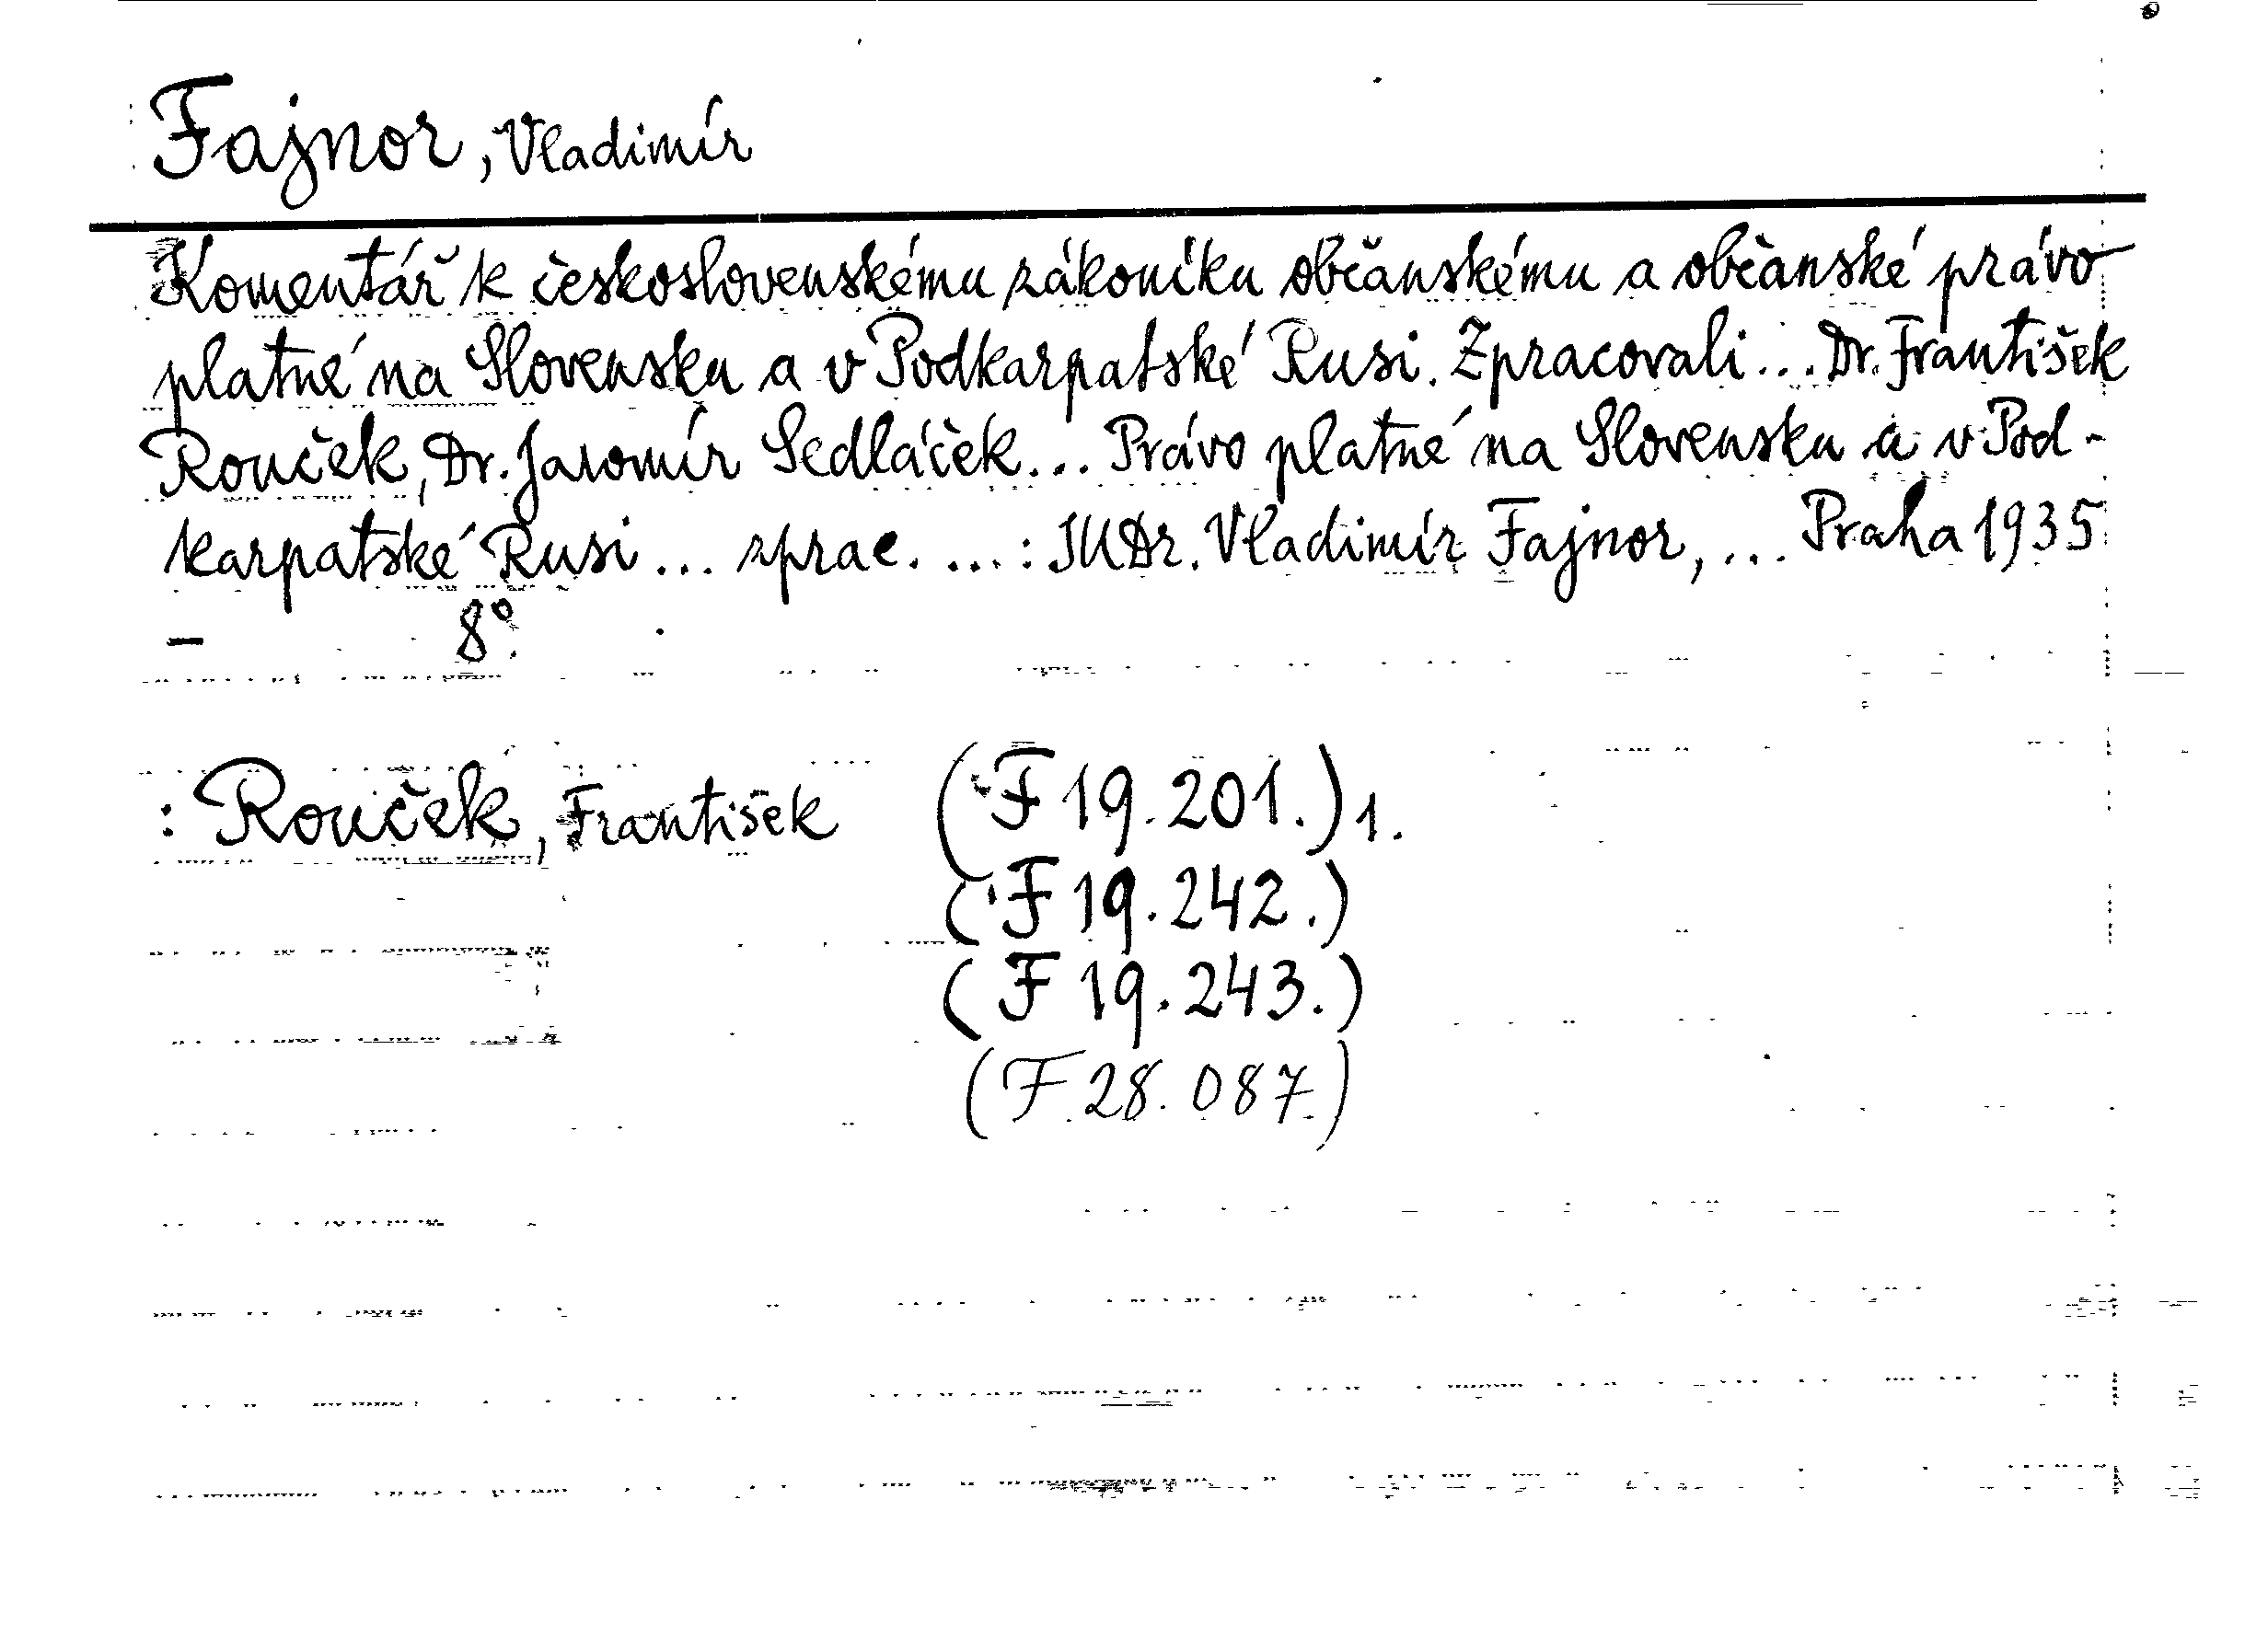 Fajnor, Vladimír
Komentář k československému zákoníku občanskému a občanské právo
platné na Slovensku a v Podkarpatské Rusi. Zpracovali ... Dr. František
Rouček, Dr. Jaromír Sedláček... Právo platné na Slovensku a v Pod-
karpatské Rusi ... zprac. ...: JUDr. Vladimír Fajnor, ... Praha 1935
– 8°.
: Rouček, František (F 19.201.) 1.
(F 19.242.)
(F 19.243.)
(F 28.087.)